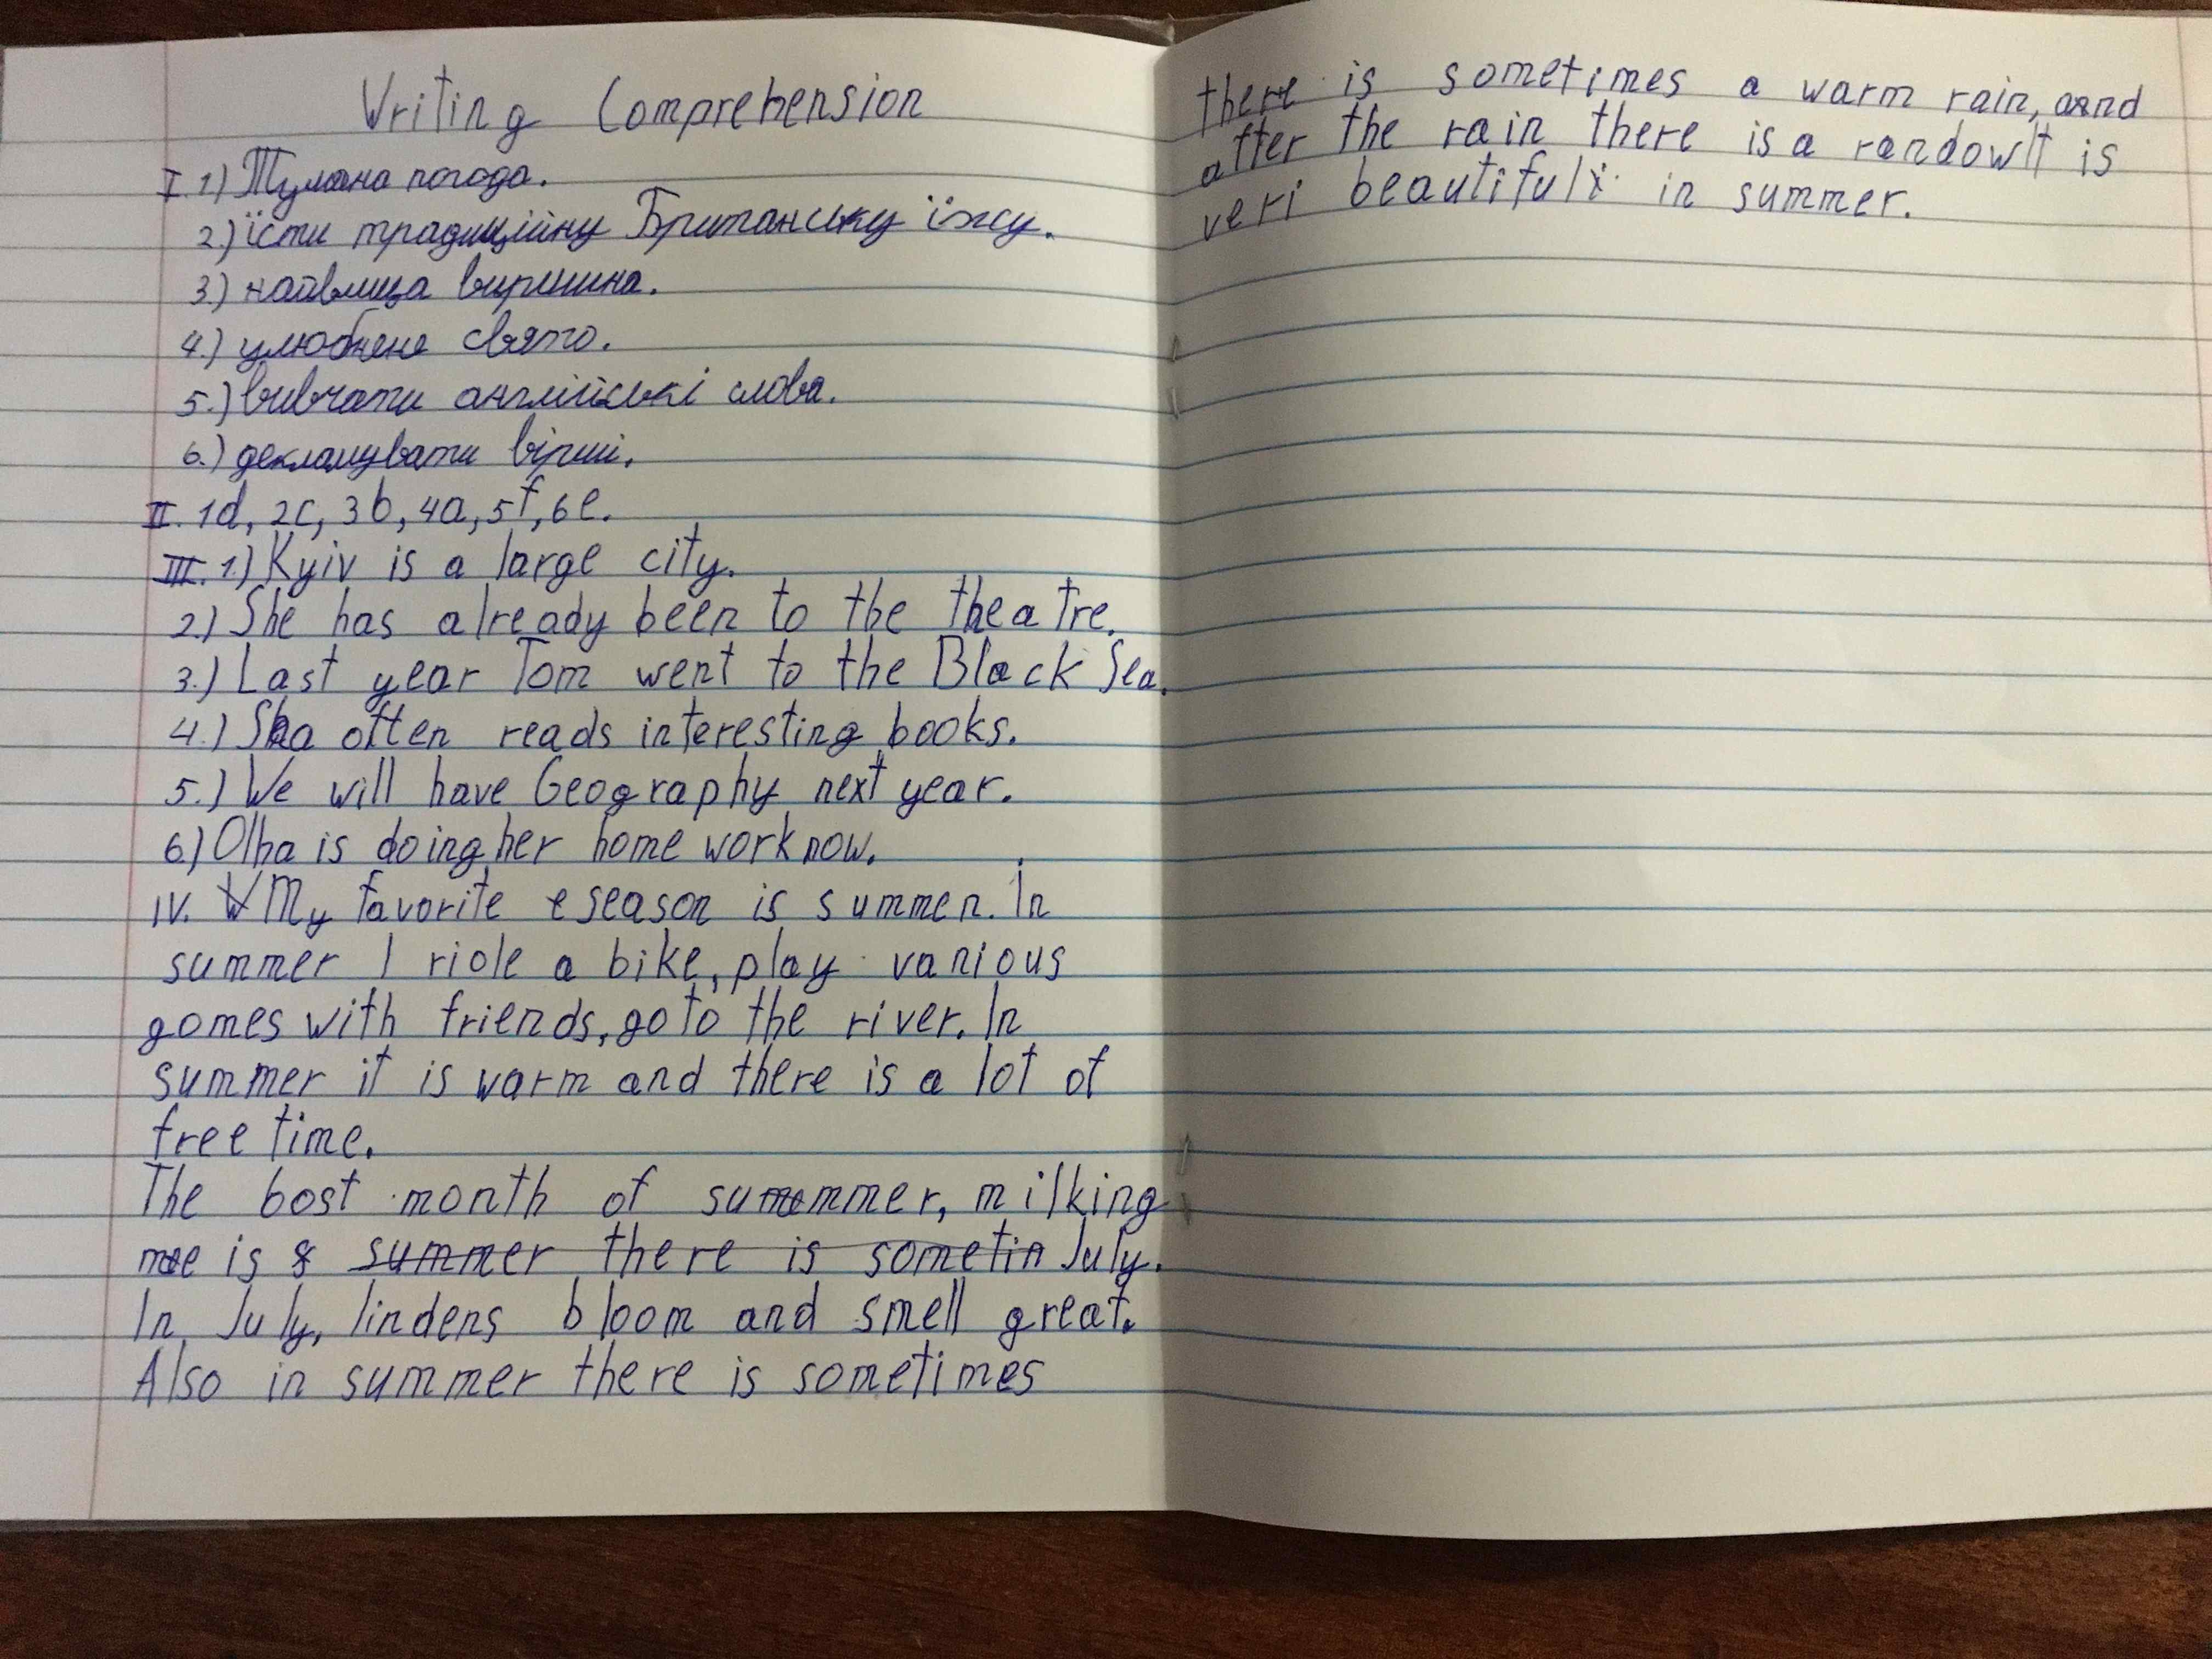 Writing Comprehension
I. 1) Тумана погода.
2) їсти традиційну Британську їжу.
3) найвища вершина.
4.) улюблене свято.
5.) вивчати англійські слова.
6.) декламувати вірші.
II. 1d, 2c, 3b, 4a, 5f, 6e.
III. 1.) Kyiv is a large city.
2.) She has already been to the theatre.
3.) Last year Tom went to the Black Sea.
4.) Sha often reads interesting books.
5.) We will have Geography next year.
6.) Olha is doing her home work now.
IV. My favorite season is summen. In
summer I ride a bike, play various
gomes with friends, go to the river. In
summer it is warm and there is a lot of
free time.
The bost month of summer, milking
me is summer there is sometin July.
In July, lindens bloom and smell great.
Also in summer there is sometimes
there is sometimes a warm rain, and
after the rain there is a randow It is
veri beautiful in summer.